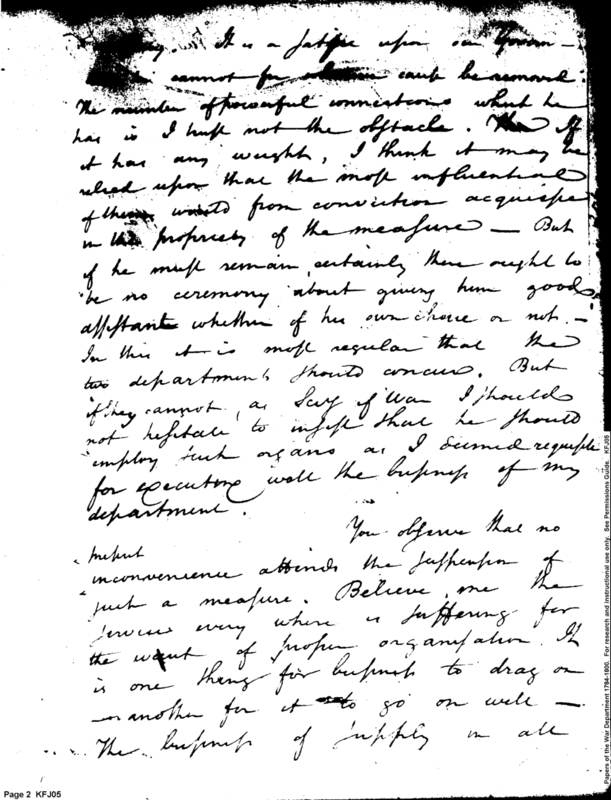 It is a satyre upon our Govern-
cannot for cause be removed.
The number of powerful connections which he
has is I trust not the obstacle. If
it has any weight, I think it may be
relied upon that the most influential
of them would from conviction acquiesce
in the propriety of the measure — But
if he must remain certainly there ought to
be no ceremony about giving him good
assistants whether of his own choice or not. —
In this it is most regular that the
two departments should concur. But
if they cannot, as Secy of War I should
not hesitate to insist that he should
employ such organs as I deemed requisite
for executing well the business of my
department.
You observe that no
"present
inconvenience attends the suspension of
such a measure. Believe me the
service every where is suffering for
the want of proper organisation. It
is one thing for business to drag on
— another for it to go on well —
The business of supply in all
Page 2 KFJ05
Papers of the War Department 1784-1800. For research and instructional use only. See Permissions Guide. KFJ05